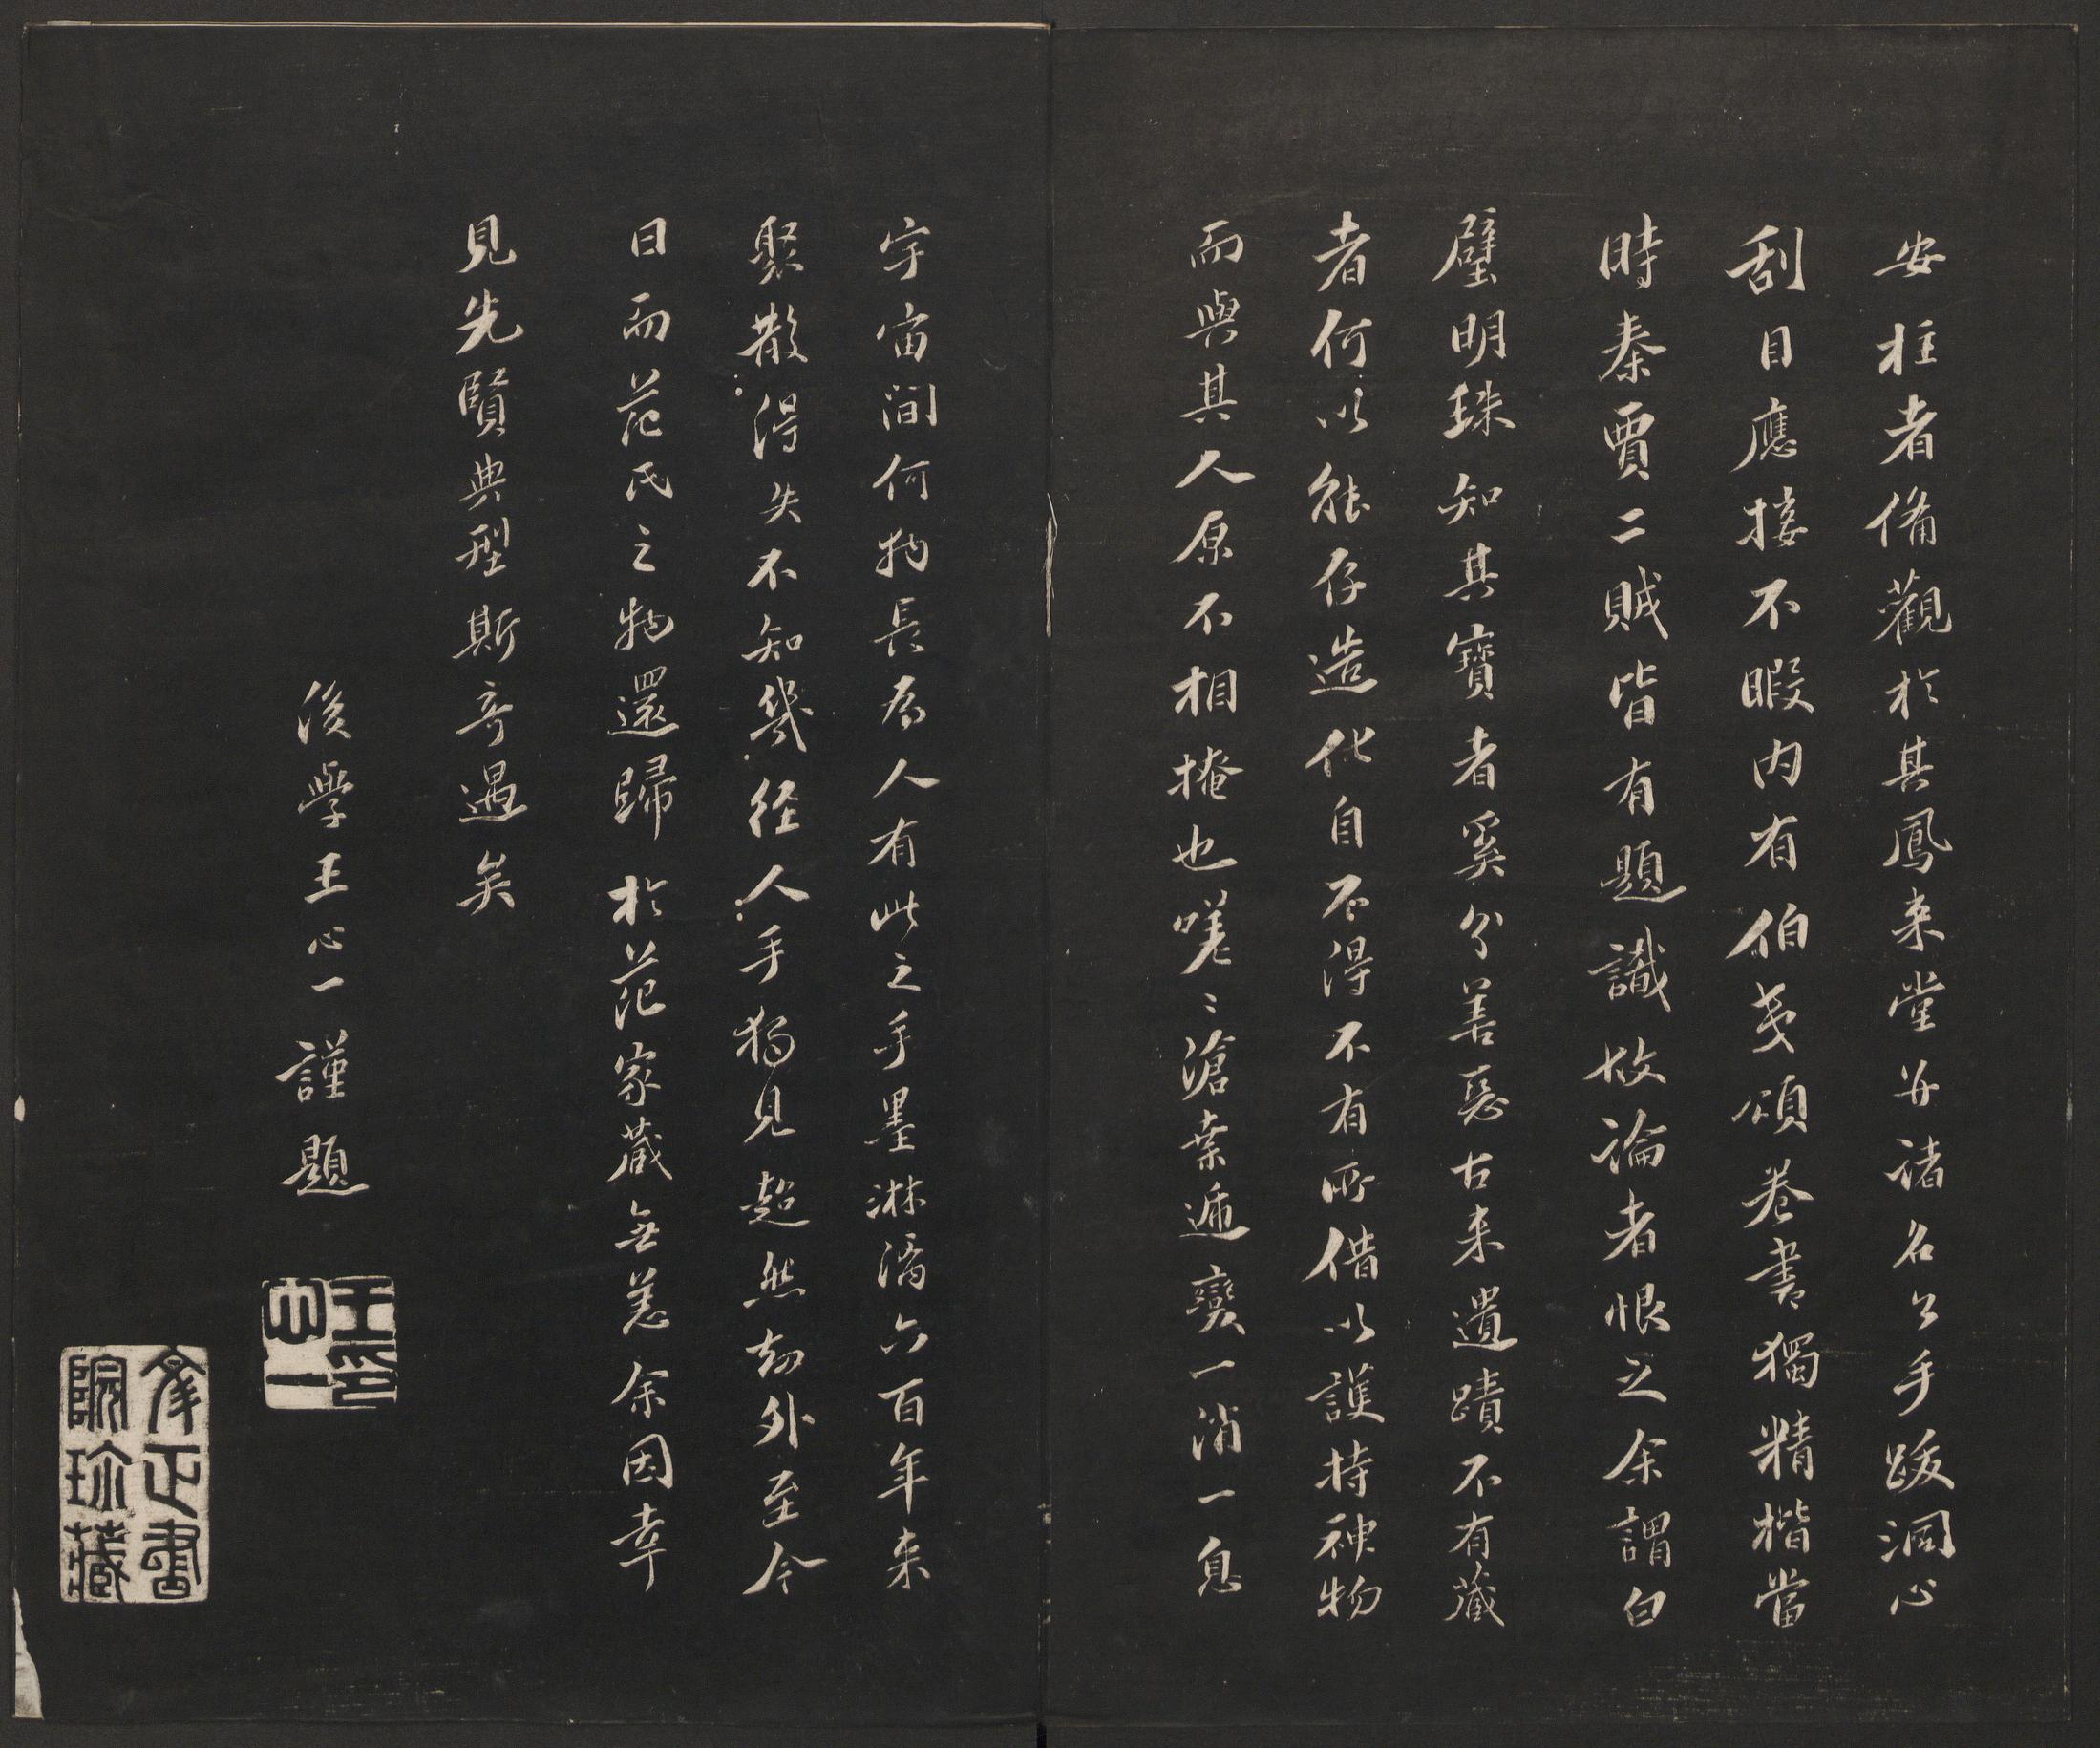 安柱者備觀於其鳳来堂廿諸名公手跋洞心
刮目應接不暇内有伯夷頌卷書獨精楷當
時秦賈二賊皆有題識故論者恨之余謂白
璧明珠知其寶者奚分善惡古来遺蹟不有藏
者何以能存造化自不得不有所借以護持神物
而與其人原不相掩也嗟〻滄桑遞變一消一息
宇宙間何物長為人有此之手墨淋漓六百年来
聚散得失不知幾径人手獨見超然劫外至今
日而范氏之物還歸於范家藏無恙余因幸
見先賢典型斯奇遇矣
後學王心一謹題
王心一印
文正書院珍藏